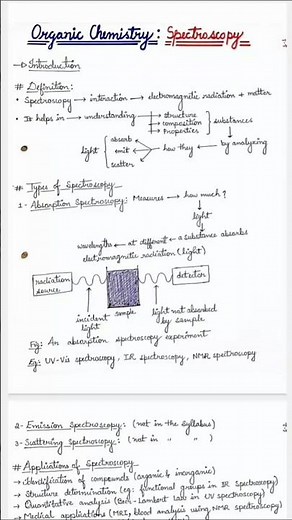 Organic Chemistry: Spectroscopy
→ Introduction
# Definition:
• Spectroscopy → interaction → electromagnetic radiation + matter
• It helps in → understanding → structure
→ composition
→ Properties
substances
light
absorb
emit
scatter
← how they ← by analyzing
# Types of Spectroscopy
1- Absorption Spectroscopy: Measures → how much?
↓
light
↓
wavelengths ← at different ← a substance absorbs
electromagnetic radiation (light)
radiation source
detector
incident light
sample
light not absorbed by sample
Fig: An absorption spectroscopy experiment
Eg: UV-Vis spectroscopy, IR spectroscopy, NMR spectroscopy
2- Emission Spectroscopy: (not in the syllabus)
3- Scattering Spectroscopy: (not in " ")
# Applications of Spectroscopy
→ identification of compounds (organic & inorganic)
→ Structure determination (eg: functional groups in IR spectroscopy)
→ Quantitative analysis (Beer-Lambert Law in UV spectroscopy)
→ Medical applications (MRI, blood analysis using NMR spectroscopy)